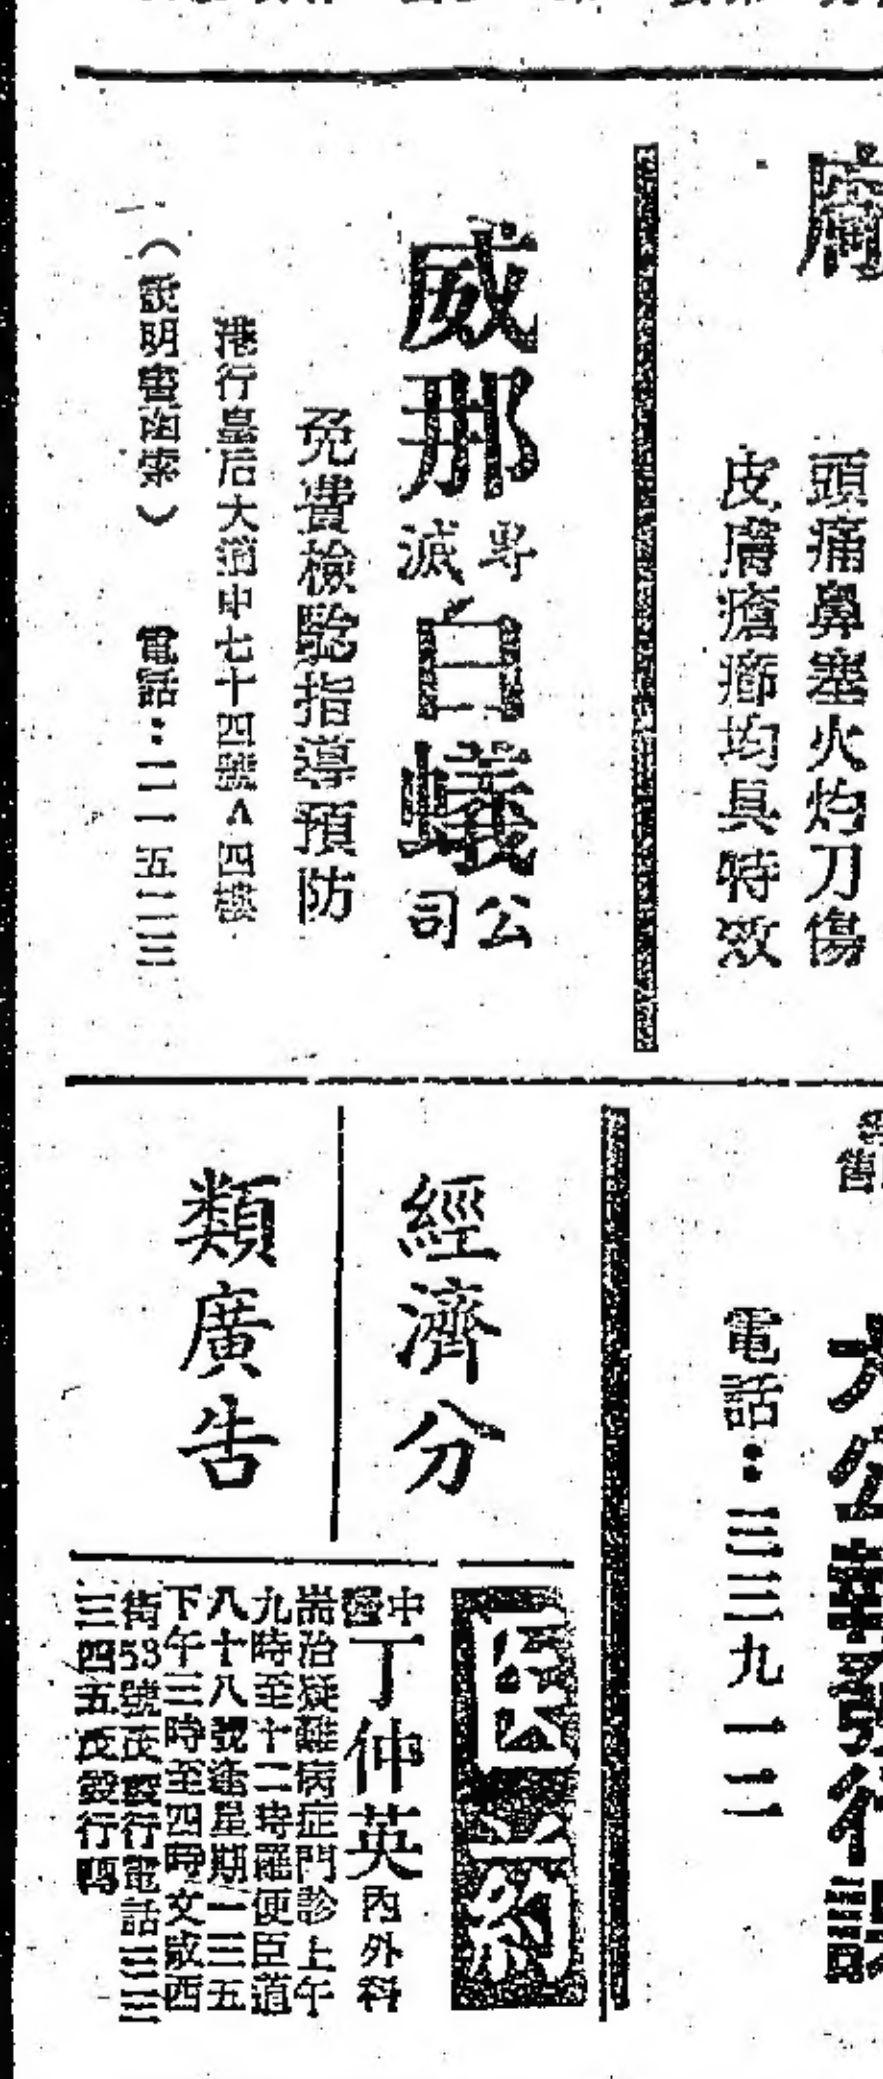 頭痛鼻塞火灼刀傷
皮膚瘡癤均具特效
威那專滅白蟻公司
免費檢驗指導預防
港行皇后大道中七十四號A四樓
(說明書函索) 電話:二一五二三
電話:三三九一二
經濟分
類廣告
医药
中醫丁仲英內外科
耑治疑難病症門診上午
九時至十二時羅便臣道
八十八號逢星期一三五
下午三時至四時文咸西
街53號茂發行電話三三
三四五茂發行轉